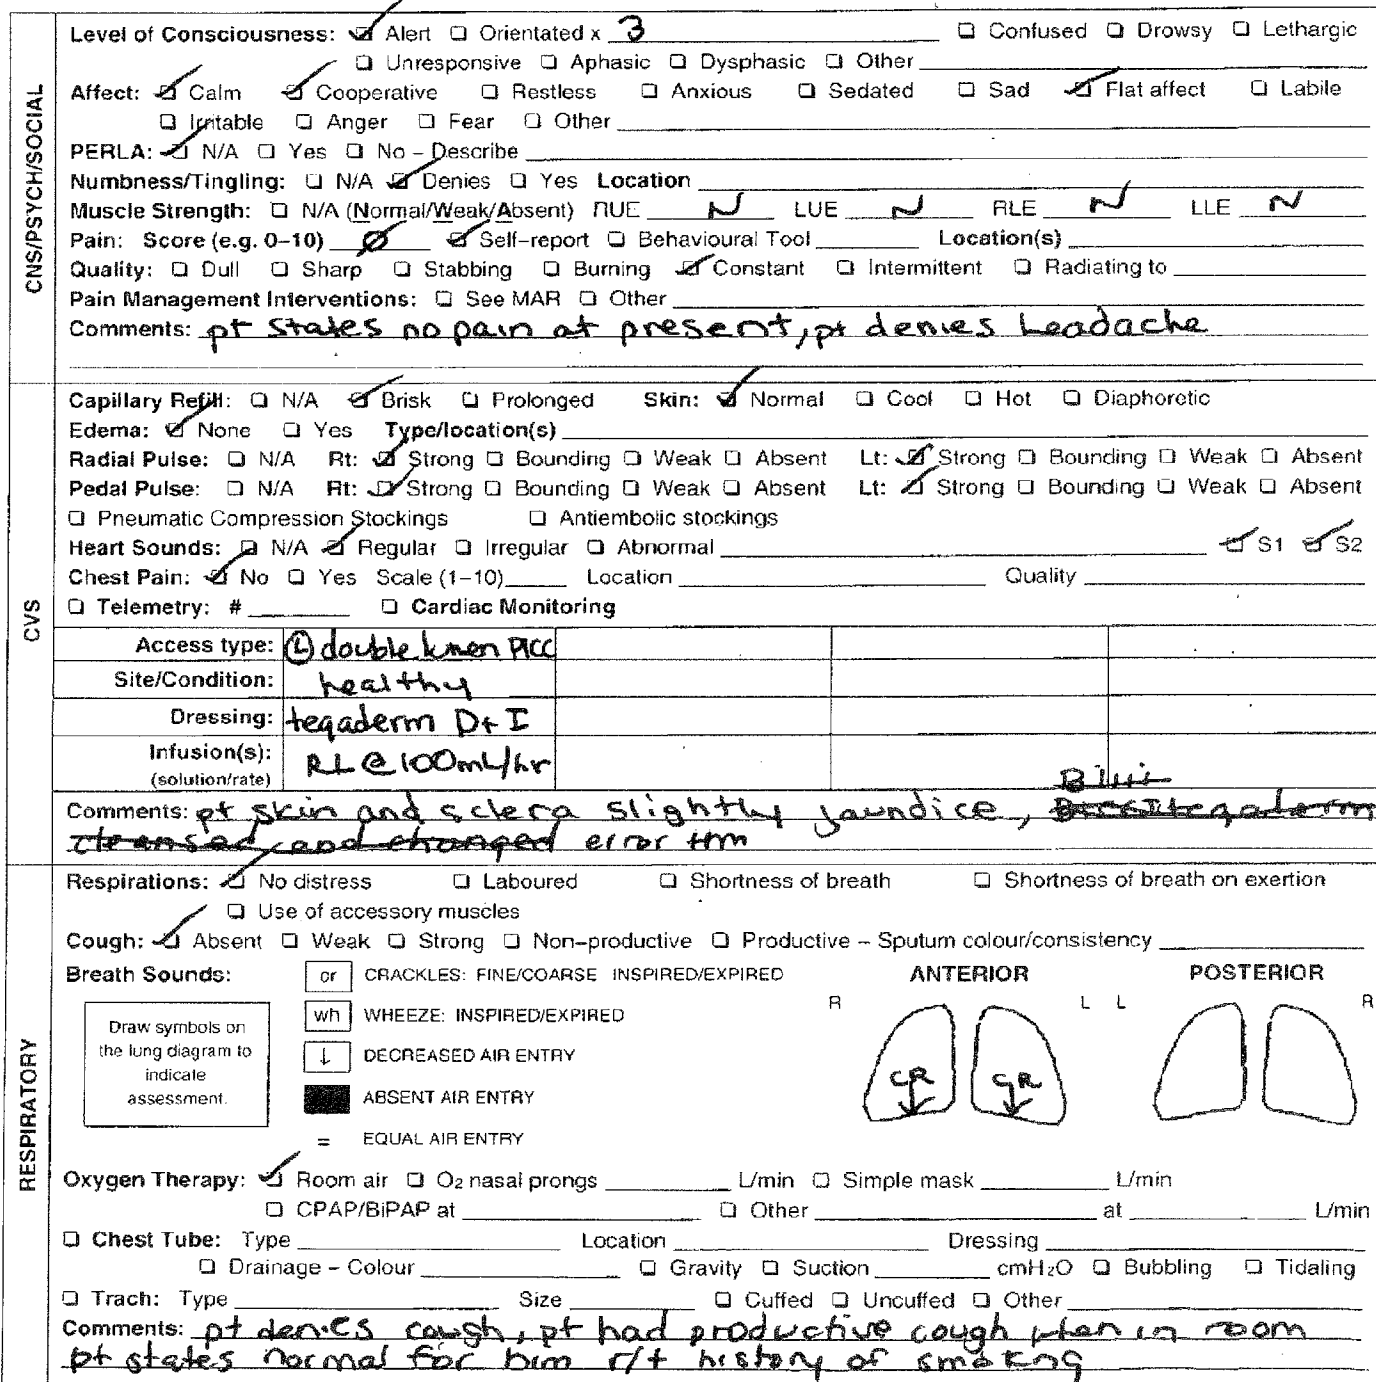 CNS/PSYCH/SOCIAL
Level of Consciousness: ☑ Alert ☐ Orientated x 3 ☐ Confused ☐ Drowsy ☐ Lethargic
☐ Unresponsive ☐ Aphasic ☐ Dysphasic ☐ Other
Affect: ☑ Calm ☑ Cooperative ☐ Restless ☐ Anxious ☐ Sedated ☐ Sad ☑ Flat affect ☐ Labile
☐ Irritable ☐ Anger ☐ Fear ☐ Other
PERLA: ☑ N/A ☐ Yes ☐ No – Describe
Numbness/Tingling: ☐ N/A ☑ Denies ☐ Yes Location
Muscle Strength: ☐ N/A (Normal/Weak/Absent) RUE N LUE N RLE N LLE N
Pain: Score (e.g. 0–10) Ø ☑ Self-report ☐ Behavioural Tool Location(s)
Quality: ☐ Dull ☐ Sharp ☐ Stabbing ☐ Burning ☑ Constant ☐ Intermittent ☐ Radiating to
Pain Management Interventions: ☐ See MAR ☐ Other
Comments: pt states no pain at present, pt denies headache
CVS
Capillary Refill: ☐ N/A ☑ Brisk ☐ Prolonged Skin: ☑ Normal ☐ Cool ☐ Hot ☐ Diaphoretic
Edema: ☑ None ☐ Yes Type/location(s)
Radial Pulse: ☐ N/A Rt: ☑ Strong ☐ Bounding ☐ Weak ☐ Absent Lt: ☑ Strong ☐ Bounding ☐ Weak ☐ Absent
Pedal Pulse: ☐ N/A Rt: ☑ Strong ☐ Bounding ☐ Weak ☐ Absent Lt: ☑ Strong ☐ Bounding ☐ Weak ☐ Absent
☐ Pneumatic Compression Stockings ☐ Antiembolic stockings
Heart Sounds: ☐ N/A ☑ Regular ☐ Irregular ☐ Abnormal ☑ S1 ☑ S2
Chest Pain: ☑ No ☐ Yes Scale (1–10) Location Quality
☐ Telemetry: # ☐ Cardiac Monitoring
Access type: Ⓛ double lumen PICC
Site/Condition: healthy
Dressing: tegaderm D+I
Infusion(s): RL @ 100mL/hr
(solution/rate)
Comments: pt skin and sclera slightly jaundice, tegaderm
cleansed and changed error HM
RESPIRATORY
Respirations: ☑ No distress ☐ Laboured ☐ Shortness of breath ☐ Shortness of breath on exertion
☐ Use of accessory muscles
Cough: ☑ Absent ☐ Weak ☐ Strong ☐ Non-productive ☐ Productive – Sputum colour/consistency
Breath Sounds:
Draw symbols on
the lung diagram to
indicate
assessment.
cr CRACKLES: FINE/COARSE INSPIRED/EXPIRED
wh WHEEZE: INSPIRED/EXPIRED
↓ DECREASED AIR ENTRY
ABSENT AIR ENTRY
= EQUAL AIR ENTRY
ANTERIOR POSTERIOR
R L L R
CR ↓ CR ↓
Oxygen Therapy: ☑ Room air ☐ O₂ nasal prongs L/min ☐ Simple mask L/min
☐ CPAP/BiPAP at ☐ Other at L/min
☐ Chest Tube: Type Location Dressing
☐ Drainage – Colour ☐ Gravity ☐ Suction cmH₂O ☐ Bubbling ☐ Tidaling
☐ Trach: Type Size ☐ Cuffed ☐ Uncuffed ☐ Other
Comments: pt denies cough, pt had productive cough when in room
pt states normal for him r/t history of smoking